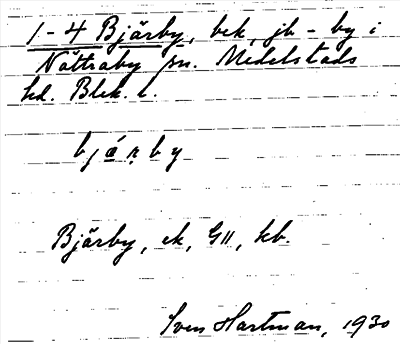 1-4 Bjärby, bek, jb - by i
Nättraby sn. Medelstads
hd. Blek. l.
bjärby
Bjärby, ek, GII, kb.
Sven Hartman, 1930